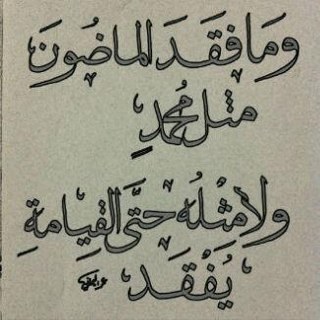 وَمَا فَقَدَ الماضُونَ
مثل مُحمدٍ
ولا مِثْلُهُ حتَّى القِيامةِ
يُفْقَد